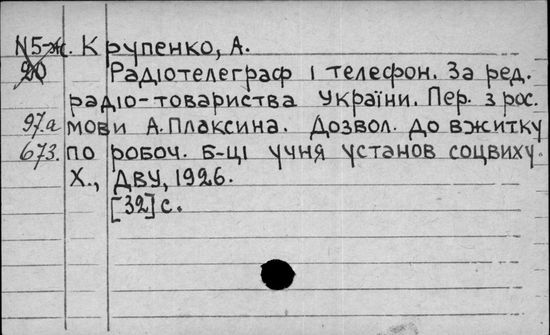 N5-ж. Крупенко, А.
20 Радіотелеграф і телефон. За ред.
радіо-товариства України. Пер. з рос.
97.а мови А. Плаксина. Дозвол. до вжитку
673. по робоч. б-ці учня установ соцвиху.
Х., ДВУ, 1926.
[32] с.